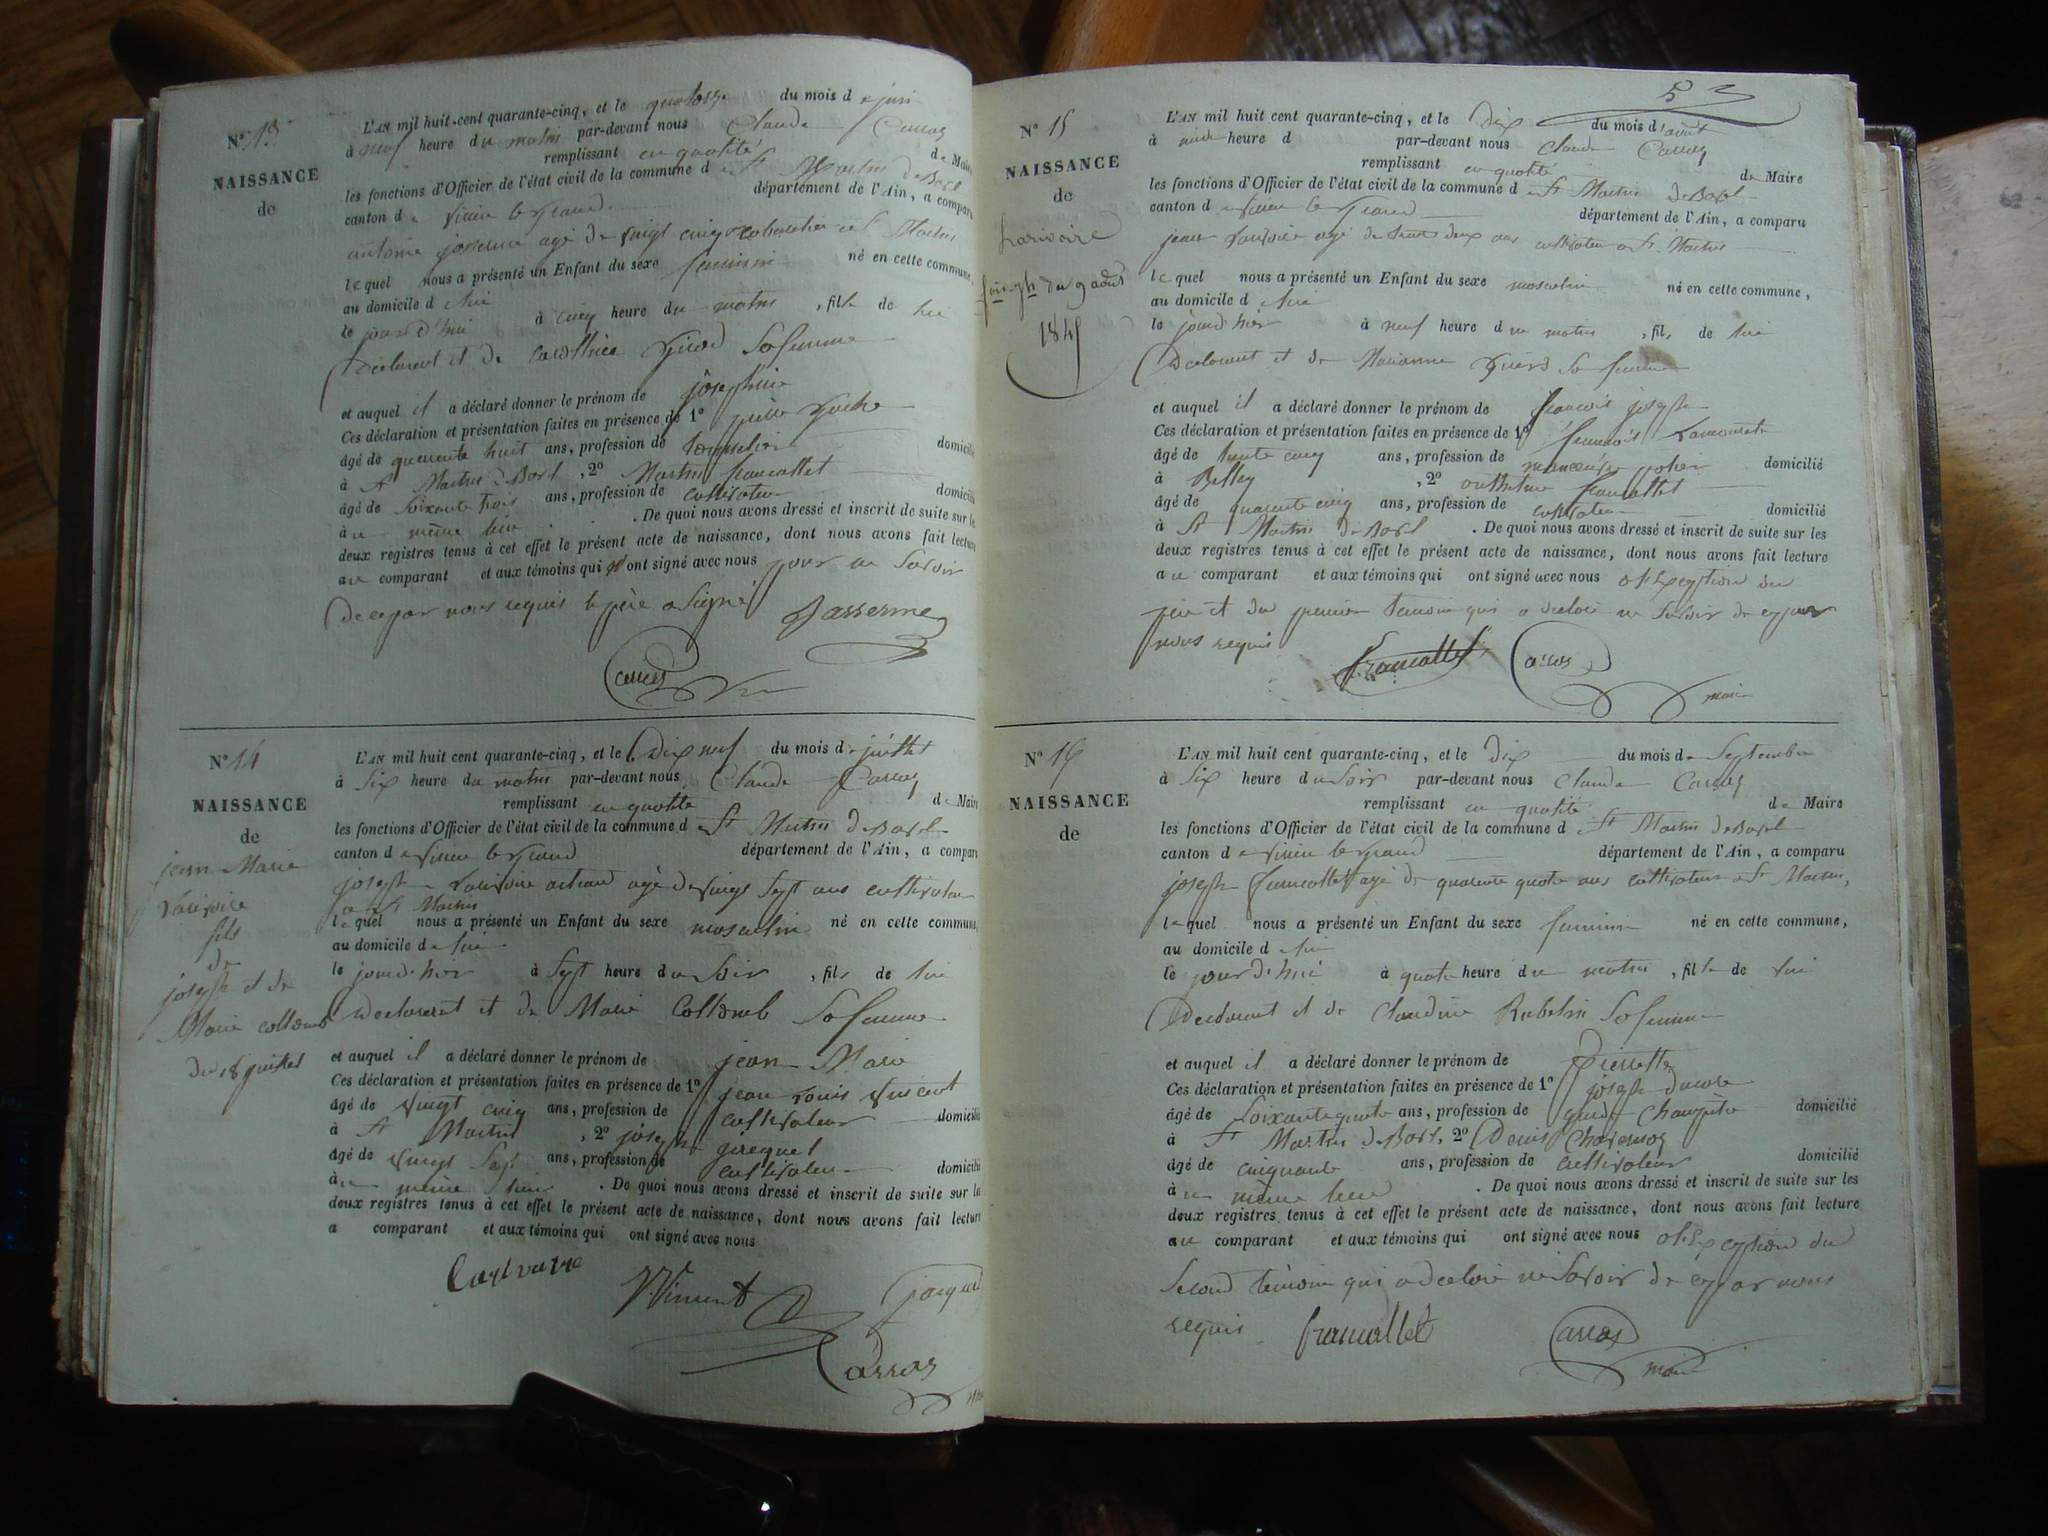 N° 13
NAISSANCE
de
L'AN mil huit cent quarante-cinq, et le quatorze du mois de juin
à neuf heure du matin par-devant nous Claude Carros
remplissant en qualité de Maire
les fonctions d'Officier de l'état civil de la commune de St Martin de Bavel
canton de virieu le grand département de l'Ain, a comparu
antoine josserme agé de vingt cinq St Martin
lequel nous a présenté un Enfant du sexe feminin né en cette commune,
au domicile de lui
le jour d'hui à cinq heure du matin, fille de lui
Declarant et de girod sa femme
et auquel il a déclaré donner le prénom de josephine
Ces déclaration et présentation faites en présence de 1°
âgé de quarente huit ans, profession de domicilié
à St Martin de Bavel, 2° Martin francallet
âgé de soixante trois ans, profession de cultivateur domicilié
à u même lieu. De quoi nous avons dressé et inscrit de suite sur les
deux registres tenus à cet effet le présent acte de naissance, dont nous avons fait lecture
au comparant et aux témoins qui ont signé avec nous pour ne savoir
de ce par nous requis le père a signé
Carros
N° 14
NAISSANCE
de
jean Marie
Larivoire
fils
de
joseph et de
Marie collomb
du 18 juillet
L'AN mil huit cent quarante-cinq, et le Dix neuf du mois de juillet
à six heure du matin par-devant nous Claude Carros
remplissant en qualité de Maire
les fonctions d'Officier de l'état civil de la commune de St Martin de Bavel
canton de virieu le grand département de l'Ain, a comparu
joseph Larivoire agé de vingt sept ans cultivateur
a St Martin
lequel nous a présenté un Enfant du sexe masculin né en cette commune,
au domicile de lui
le jour d'hier à sept heure du soir, fils de lui
Declarant et de Marie Collomb sa femme
et auquel il a déclaré donner le prénom de jean Marie
Ces déclaration et présentation faites en présence de 1° jean Louis vincent
âgé de vingt cinq ans, profession de cultivateur domicilié
à St Martin, 2° joseph
âgé de vingt sept ans, profession de cultivateur domicilié
à u même lieu. De quoi nous avons dressé et inscrit de suite sur les
deux registres tenus à cet effet le présent acte de naissance, dont nous avons fait lecture
a comparant et aux témoins qui ont signé avec nous
Vincent
Carros
N° 15
NAISSANCE
de
Larivoire
joseph du 9 aout
1845
L'AN mil huit cent quarante-cinq, et le dix du mois d'août
à midi heure d par-devant nous Claude Carros
remplissant en qualité de Maire
les fonctions d'Officier de l'état civil de la commune de St Martin de Bavel
canton de virieu le grand département de l'Ain, a comparu
jean Larivoire agé de trente deux ans cultivateur a St Martin
lequel nous a présenté un Enfant du sexe masculin né en cette commune,
au domicile de lui
le jour d'hier à neuf heure du matin, fils de lui
Declarant et de Marianne sa femme
et auquel il a déclaré donner le prénom de francois joseph
Ces déclaration et présentation faites en présence de 1° francois
âgé de trente cinq ans, profession de domicilié
à Belley, 2° anthelme francallet
âgé de quarente cinq ans, profession de cultivateur domicilié
à St Martin de Bavel. De quoi nous avons dressé et inscrit de suite sur les
deux registres tenus à cet effet le présent acte de naissance, dont nous avons fait lecture
au comparant et aux témoins qui ont signé avec nous à l'exception du
père et du premier temoin qui a declaré ne savoir de ce par
nous requis
francallet Carros
maire
N° 16
NAISSANCE
de
L'AN mil huit cent quarante-cinq, et le dix du mois de Septembre
à six heure du soir par-devant nous Claude Carros
remplissant en qualité de Maire
les fonctions d'Officier de l'état civil de la commune de St Martin de Bavel
canton de virieu le grand département de l'Ain, a comparu
joseph francallet agé de quarente quatre ans cultivateur a St Martin,
lequel nous a présenté un Enfant du sexe feminin né en cette commune,
au domicile de lui
le jour d'hui à quatre heure du matin, fille de lui
Declarant et de Claudine Rubelin sa femme
et auquel il a déclaré donner le prénom de Pierrette
Ces déclaration et présentation faites en présence de 1° joseph
âgé de soixante quatre ans, profession de garde champêtre domicilié
à St Martin de Bavel, 2° Denis
âgé de cinquante ans, profession de cultivateur domicilié
à u même lieu. De quoi nous avons dressé et inscrit de suite sur les
deux registres tenus à cet effet le présent acte de naissance, dont nous avons fait lecture
au comparant et aux témoins qui ont signé avec nous à l'exception du
second témoin qui a declaré ne savoir de ce par nous
requis francallet Carros
maire